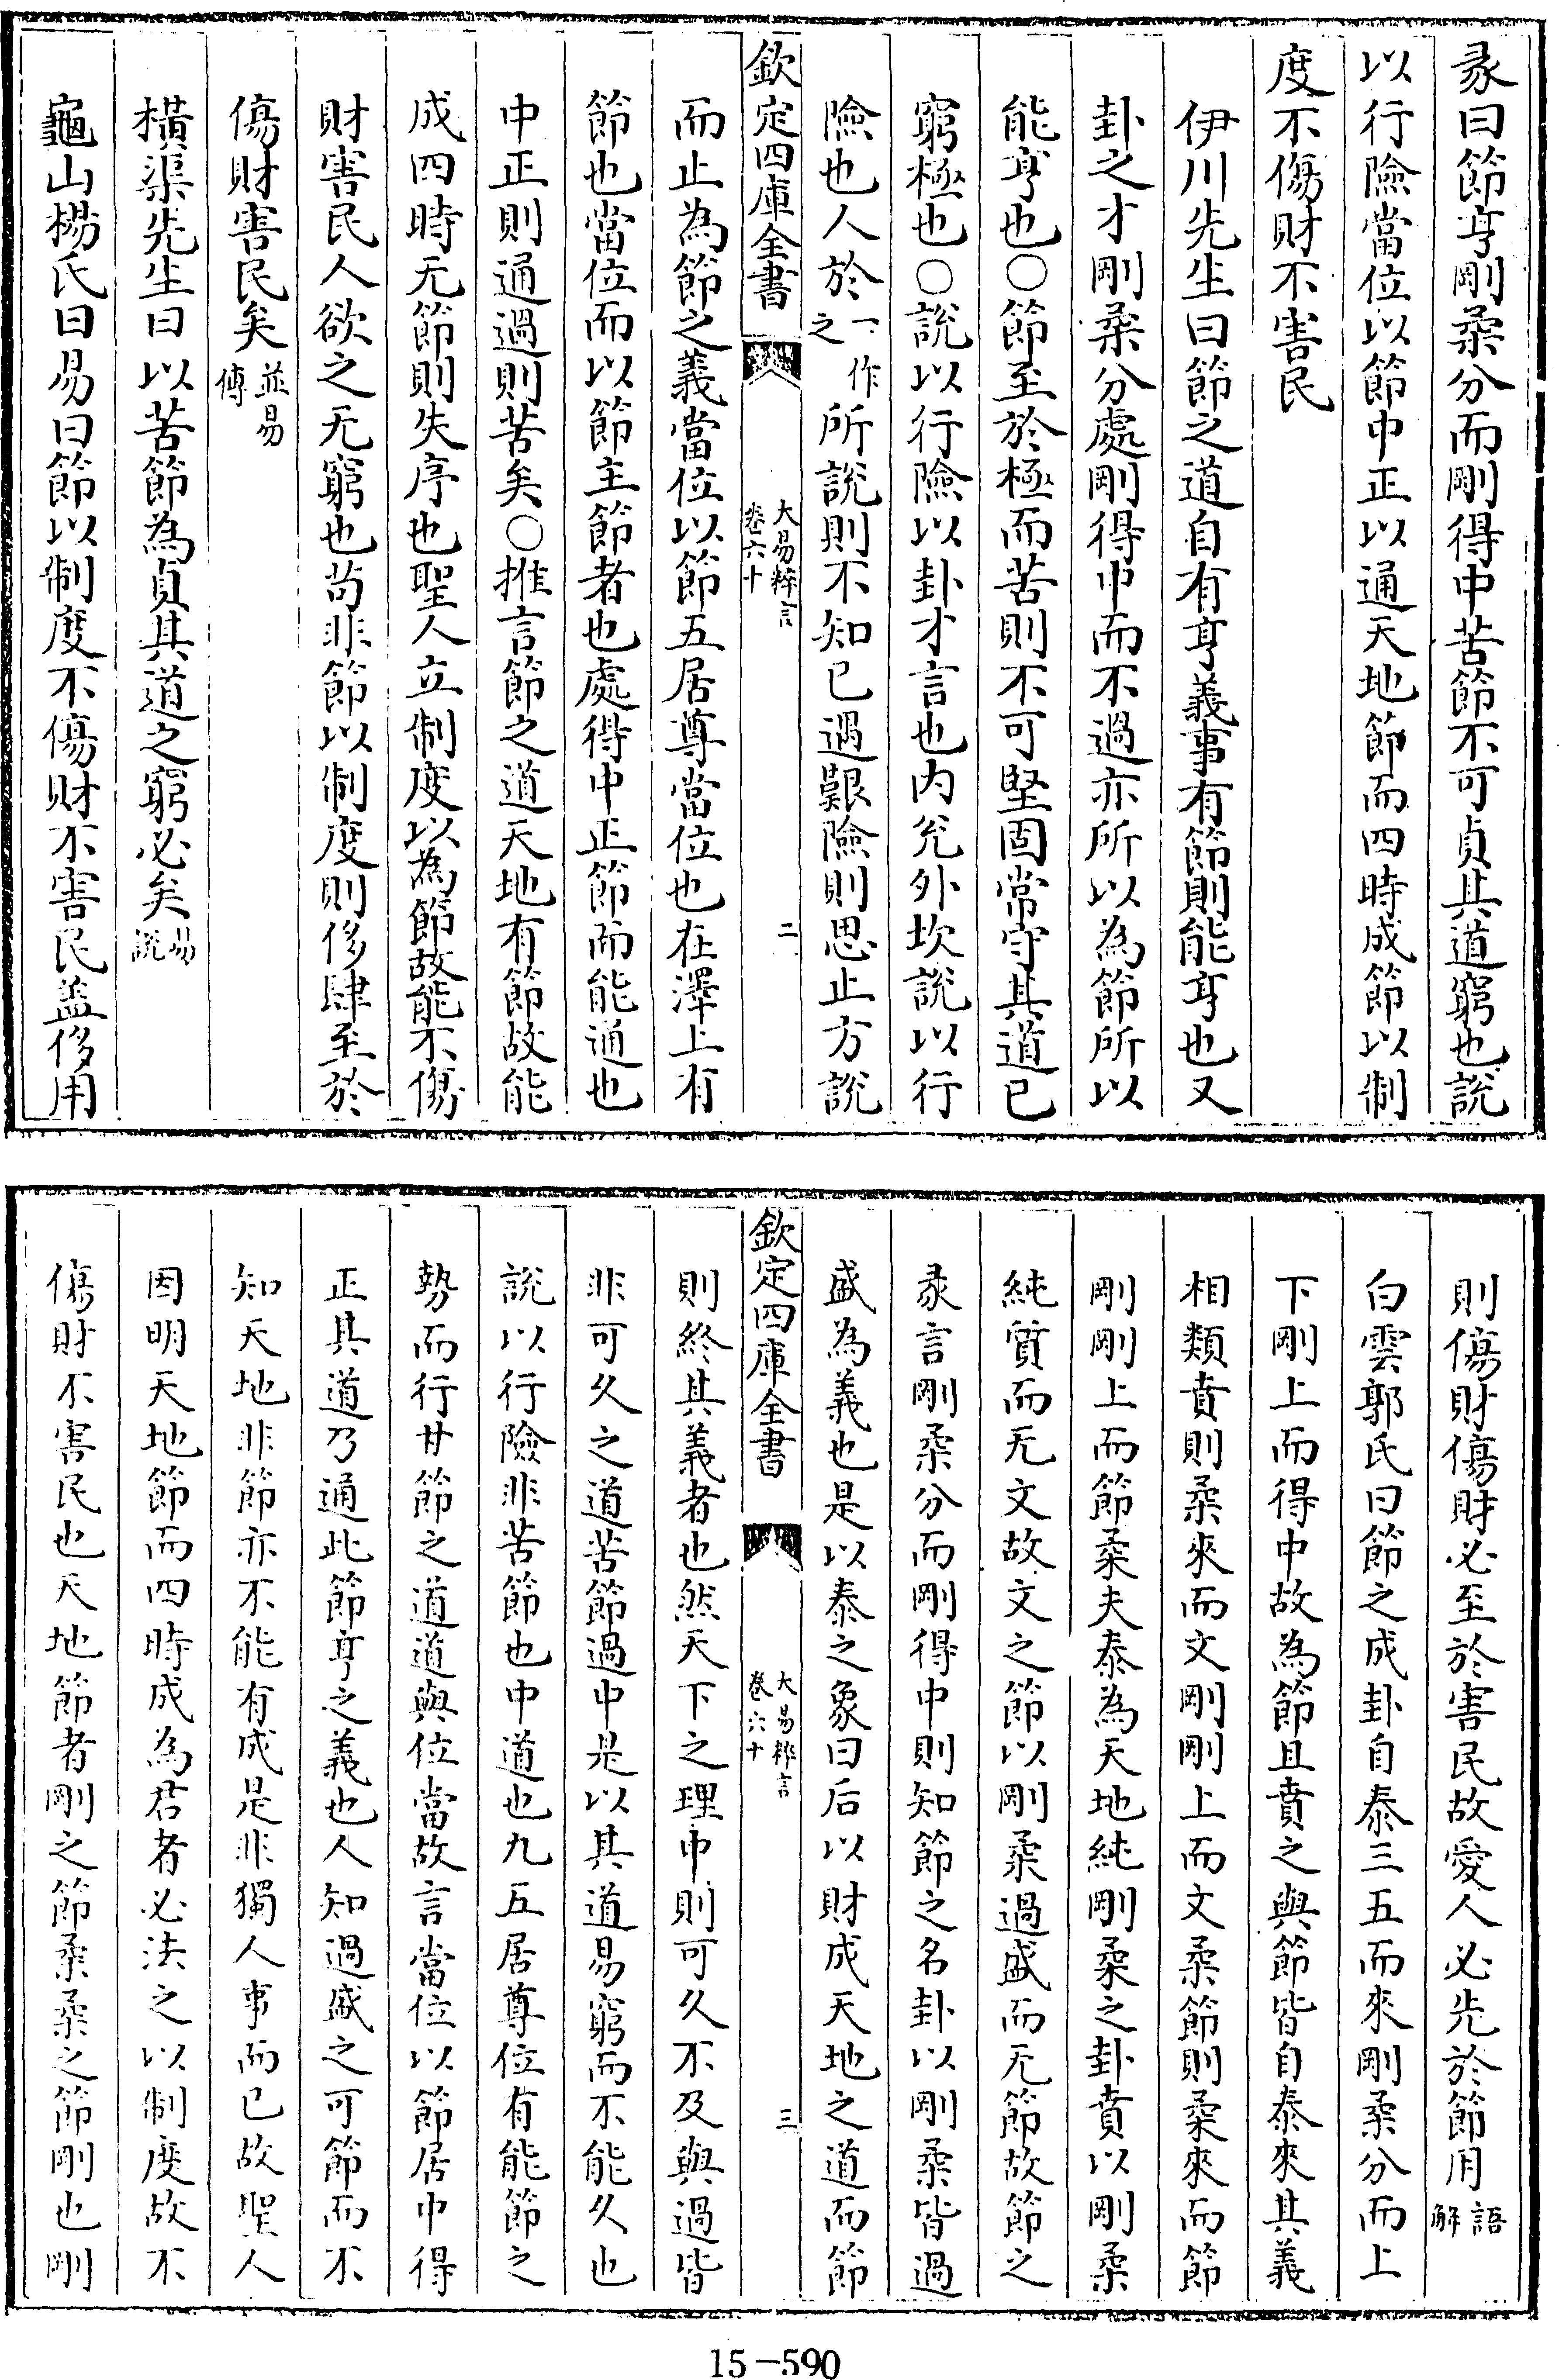 彖曰節亨剛柔分而剛得中苦節不可貞其道窮也說
以行險當位以節中正以通天地節而四時成節以制
度不傷財不害民
伊川先生曰節之道自有亨義事有節則能亨也又
卦之才剛柔分處剛得中而不過亦所以為節所以
能亨也○節至於極而苦則不可堅固常守其道已
窮極也○說以行險以卦才言也内兊外坎說以行
險也人於一作之所說則不知已遇艱險則思止方說
欽定四庫全書
大易粹言
卷六十
二
而止為節之義當位以節五居尊當位也在澤上有
節也當位而以節主節者也處得中正節而能通也
中正則通過則苦矣○推言節之道天地有節故能
成四時无節則失序也聖人立制度以為節故能不傷
財害民人欲之无窮也苟非節以制度則侈肆至於
傷財害民矣並易傳
橫渠先生曰以苦節為貞其道之窮必矣易說
龜山楊氏曰易曰節以制度不傷財不害民盖侈用
則傷財傷財必至於害民故愛人必先於節用語解
白雲郭氏曰節之成卦自泰三五而來剛柔分而上
下剛上而得中故為節且賁之與節皆自泰來其義
相類賁則柔來而文剛剛上而文柔節則柔來而節
剛剛上而節柔夫泰為天地純剛柔之卦賁以剛柔
純質而无文故文之節以剛柔過盛而无節故節之
彖言剛柔分而剛得中則知節之名卦以剛柔皆過
盛為義也是以泰之象曰后以財成天地之道而節
欽定四庫全書
大易粹言
卷六十
三
則終其義者也然天下之理中則可久不及與過皆
非可久之道苦節過中是以其道易窮而不能久也
說以行險非苦節也中道也九五居尊位有能節之
勢而行甘節之道道與位當故言當位以節居中得
正其道乃通此節亨之義也人知過盛之可節而不
知天地非節亦不能有成是非獨人事而已故聖人
因明天地節而四時成為君者必法之以制度故不
傷財不害民也天地節者剛之節柔柔之節剛也剛
15-590